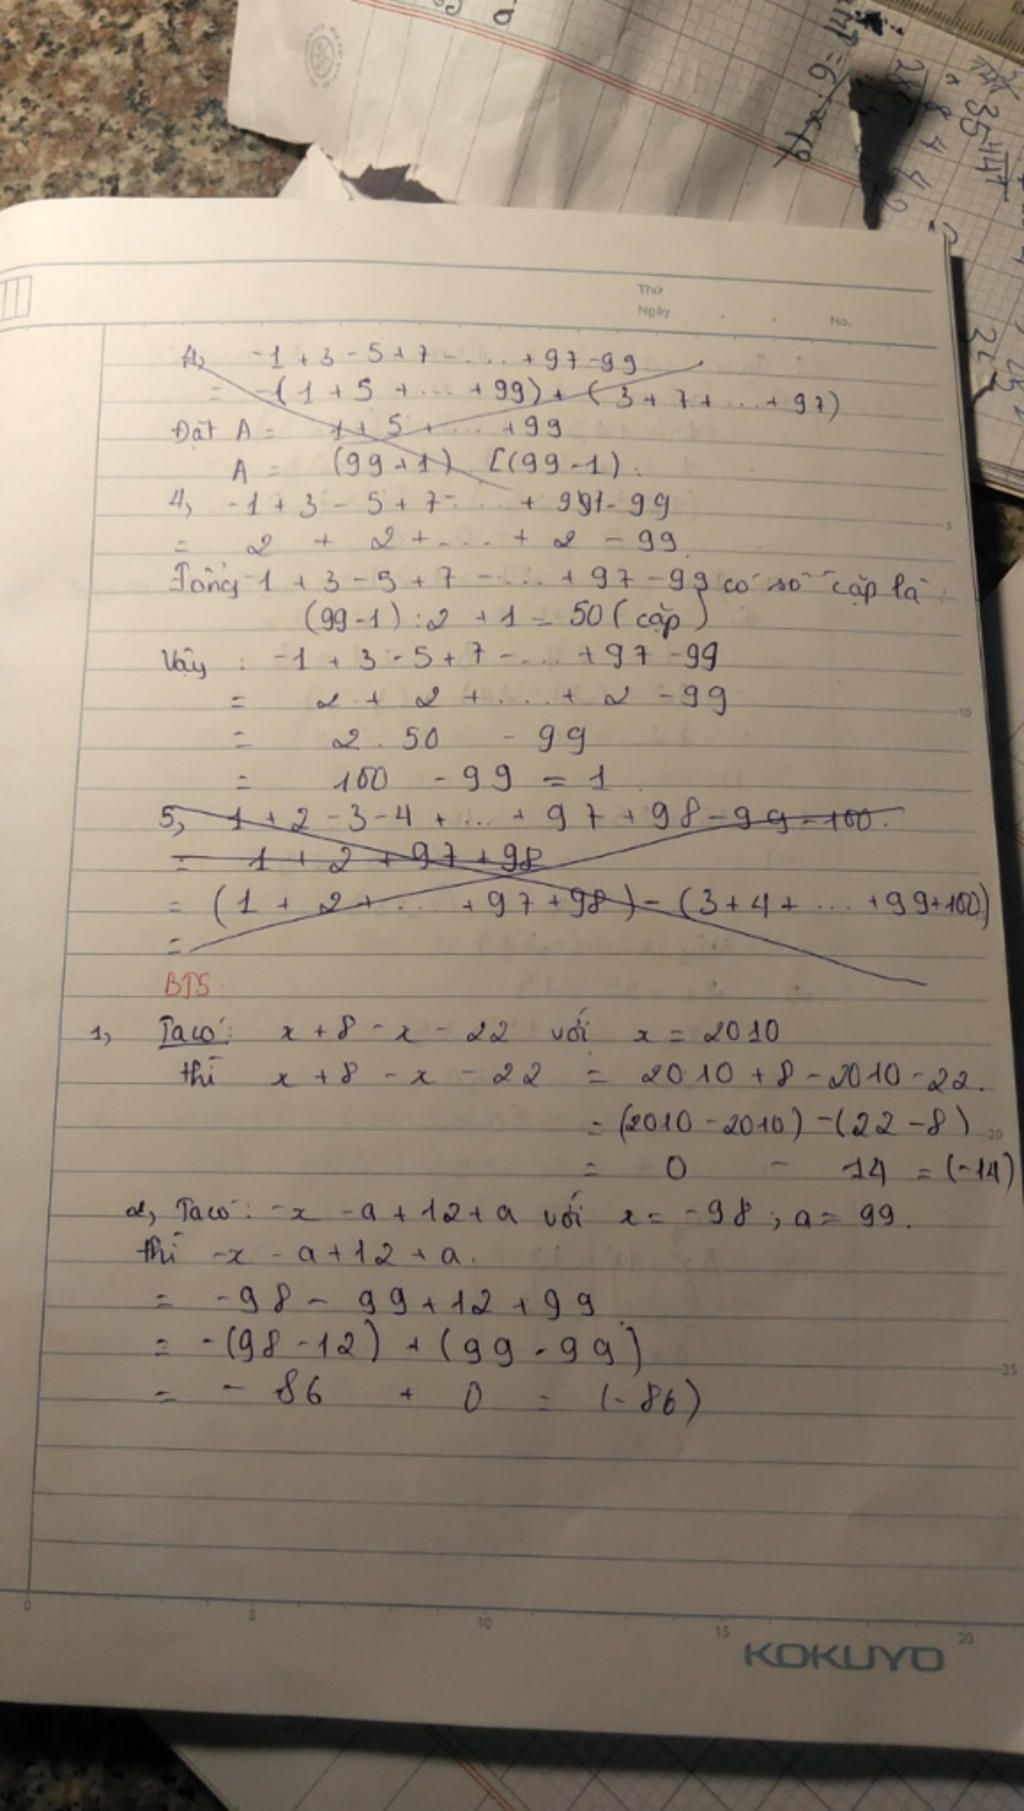 Thứ
Ngày
No.
4, -1 + 3 - 5 + 7 - .... + 97 - 99
= -(1 + 5 + .... + 99) + (3 + 7 + ... + 97)
Đặt A = 1 + 5 + .... + 99
A = (99 + 1) . [(99 - 1) .
4, -1 + 3 - 5 + 7 - ... + 991 - 99
= 2 + 2 + .... + 2 - 99
Tổng -1 + 3 - 5 + 7 - .... + 97 - 99 có số cặp là :
(99 - 1) : 2 + 1 = 50 ( cặp )
Vậy : -1 + 3 - 5 + 7 - .... + 97 - 99
= 2 + 2 + .... + 2 - 99
= 2 . 50 - 99
= 100 - 99 = 1
5, 1 + 2 - 3 - 4 + .... + 97 + 98 - 99 - 100.
= 1 + 2 + 97 + 98
= (1 + 2 + .... + 97 + 98) - (3 + 4 + .... + 99 + 100)
=
BT5:
1, Ta có: x + 8 - x - 22 với x = 2010
thì x + 8 - x - 22 = 2010 + 8 - 2010 - 22.
= (2010 - 2010) - (22 - 8)
= 0 - 14 = (-14)
2, Ta có: -x - a + 12 + a với x = -98 ; a = 99.
thì -x - a + 12 + a.
= -98 - 99 + 12 + 99
= -(98 - 12) + (99 - 99)
= - 86 + 0 = (-86)
5
10
20
25
0
5
10
15
20
KOKUYO